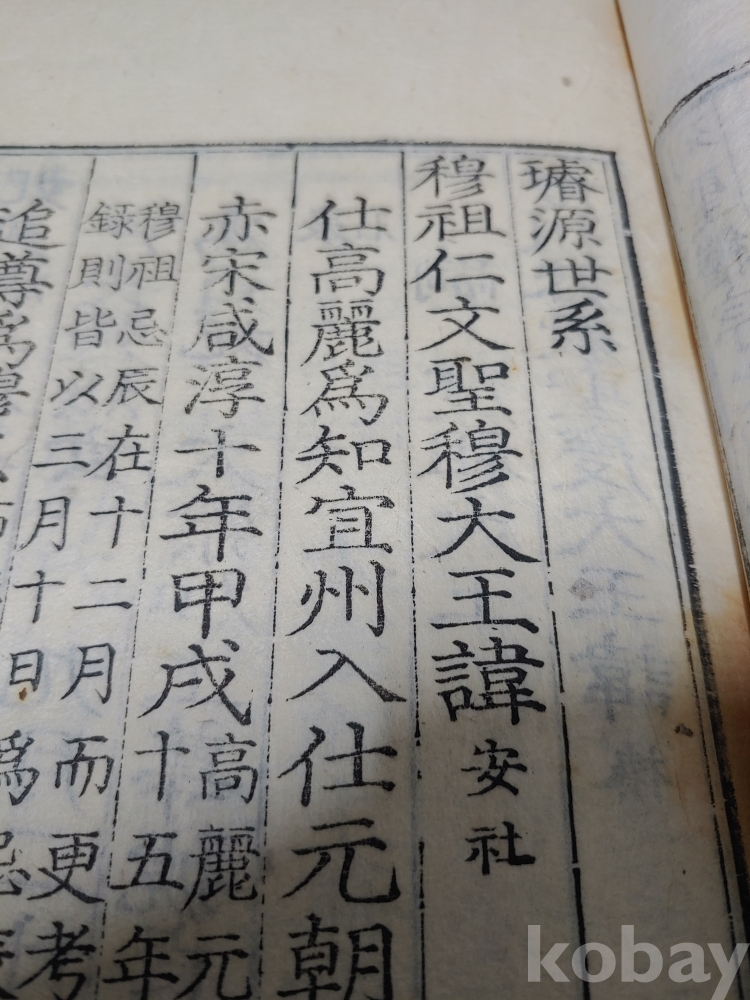 璿源世系
穆祖仁文聖穆大王諱安社
仕高麗爲知宜州入仕元朝
赤宋咸淳十年甲戌
高麗元
十五年
穆祖忌辰在十二月而更考
錄則皆以三月十日爲忌
追尊爲穆
kobay